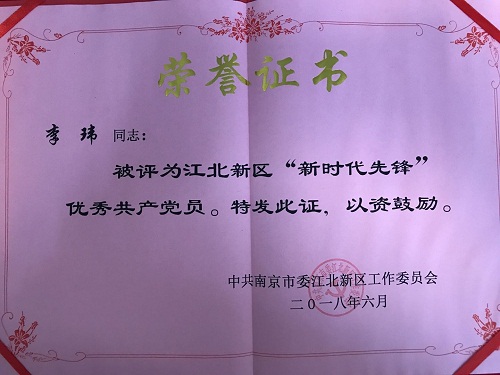 荣誉证书
李玮 同志：
被评为江北新区“新时代先锋”
优秀共产党员。特发此证，以资鼓励。
中共南京市委江北新区工作委员会
二〇一八年六月